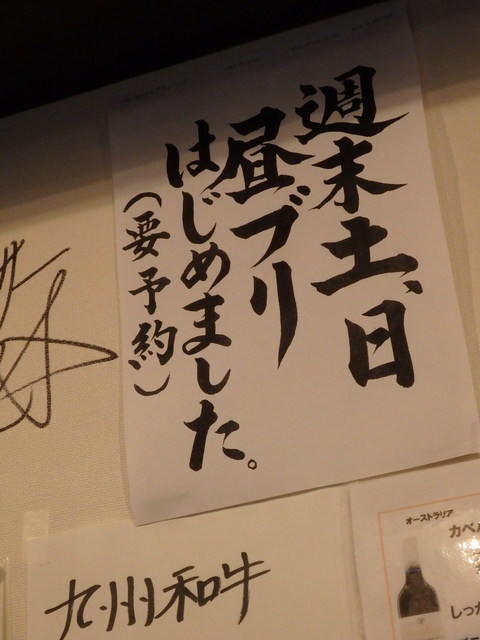 週末土、日
昼ブリ
はじめました。
（要予約）
九州和牛
オーストラリア
カベ
しっ